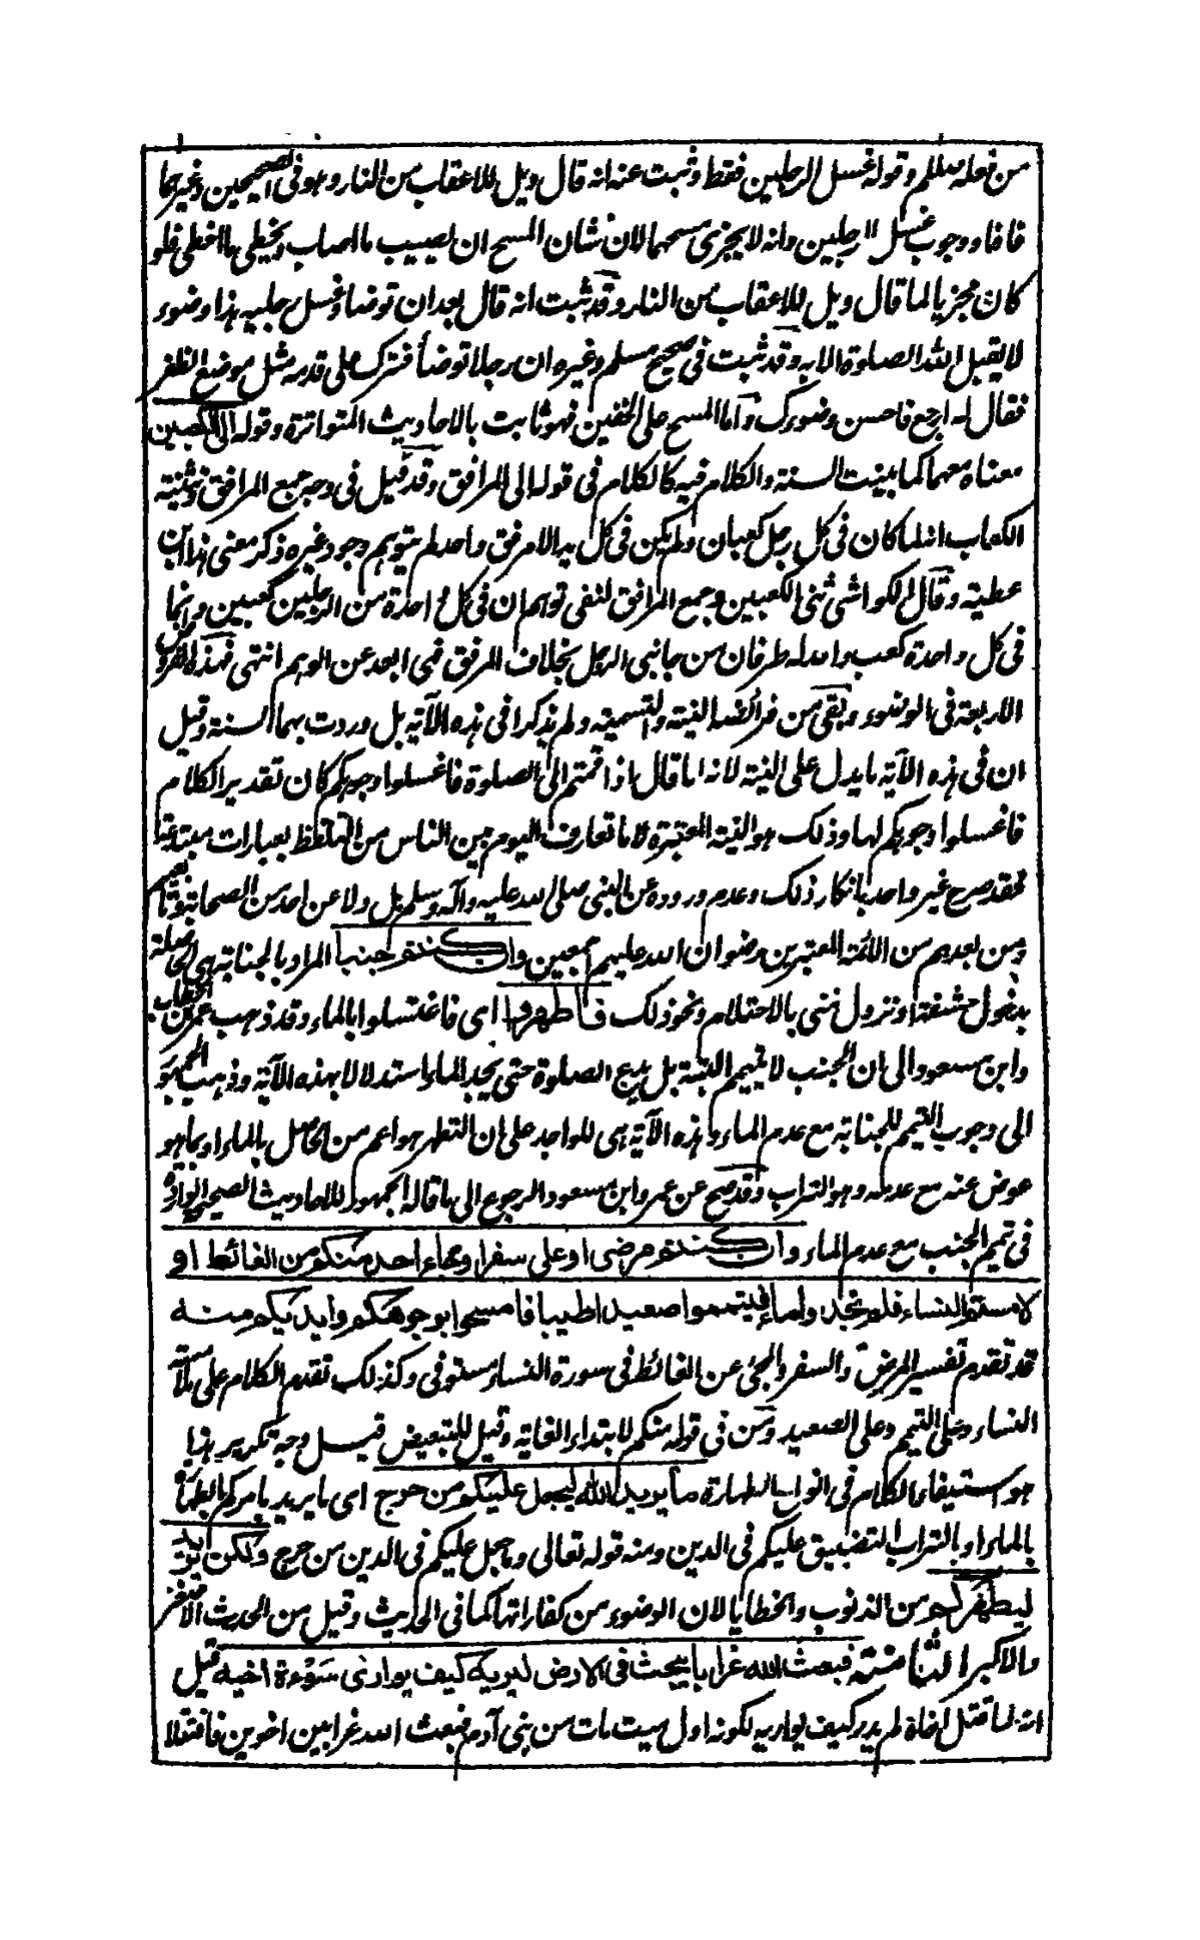 من فعله صللم وقوله غسل الرجلين فقط وثبت عنه انه قال ويل للاعقاب من النار وهو فى الصحيحين وغيرهما
فافاد وجوب غسل الرجلين وانه لا يجزى مسحهما لان شان المسح ان يصيب ما اصاب ويخطى ما اخطى فلو
كان مجزيا لما قال ويل للاعقاب من النار وقد ثبت انه قال بعد ان توضا وغسل رجليه هذا وضوء
لا يقبل الله الصلوة الا به وقد ثبت فى صحيح مسلم وغيره ان رجلا توضأ فترك على قدمه مثل موضع الظفر
فقال له ارجع فاحسن وضوءك واما المسح على الخفين فهو ثابت بالاحاديث المتواترة وقوله الى الكعبين
معناه معهما كما بينت السنة والكلام فيه كالكلام فى قوله الى المرافق وقد قيل فى وجه جمع المرافق وتثنية
الكعاب انه لما كان فى كل رجل كعبان ولم يكن فى كل يد الا مرفق واحد لم يتوهم وجود غيره ذكر معنى هذا ابن
عطية وقال الكواشى ثنى الكعبين وجمع المرافق لنفى توهم ان فى كل واحدة من الرجلين كعبين وانما
فى كل واحدة كعب واحد له طرفان من جانبى الرجل بخلاف المرفق فهى ابعد عن الوهم انتهى فهذه الفروض
الاربعة فى الوضوء وبقى من فرائضه النية والتسمية ولم يذكرا فى هذه الآية بل وردت بهما السنة وقيل
ان فى هذه الآية ما يدل على النية لانه لما قال اذا قمتم الى الصلوة فاغسلوا وجوهكم كان تقدير الكلام
فاغسلوا وجوهكم لها وذلك هو النية المعتبرة لا ما تعارف اليوم بين الناس من التلفظ بعبارات مبتدعة
فقد صرح غير واحد بانكار ذلك وعدم وروده عن النبى صلى الله عليه وآله وسلم بل ولا عن احد من الصحابة وتابعيهم
ومن بعدهم من الائمة المعتبرين رضوان الله عليهم اجمعين وان كنتم جنبا المراد بالجنابة هى الحاصلة
بدخول حشفة او نزول منى بالاحتلام ونحو ذلك فاطهروا اى فاغتسلوا بالماء وقد ذهب عمر بن الخطاب
وابن مسعود الى ان الجنب لا يتيمم البتة بل يدع الصلوة حتى يجد الماء استدلالا بهذه الآية وذهب الجمهور
الى وجوب التيمم للجنابة مع عدم الماء وهذه الآية هى للواجد على ان التطهر هو اعم من الحاصل بالماء او بما هو
عوض عنه مع عدمه وهو التراب وقد صح عن عمر وابن مسعود الرجوع الى ما قاله الجمهور للاحاديث الصحيحة الواردة
فى تيمم الجنب مع عدم الماء وان كنتم مرضى او على سفر او جاء احد منكم من الغائط او
لامستم النساء فلم تجدوا ماء فتيمموا صعيدا طيبا فامسحوا بوجوهكم وايديكم منه
قد تقدم تفسير المرض والسفر والمجئ عن الغائط فى سورة النساء مستوفى وكذلك تقدم الكلام على ملامسة
النساء وعلى التيمم وعلى الصعيد ومن فى قوله منكم لابتداء الغاية وقيل للتبعيض قيل وجه تكرير هذا
هو استيفاء الكلام فى انواع الطهارة ما يريد الله ليجعل عليكم من حرج اى ما يريد بامركم بالطهارة
بالماء او بالتراب التضييق عليكم فى الدين ومنه قوله تعالى وما جعل عليكم فى الدين من حرج ولكن يريد
ليطهركم من الذنوب والخطايا لان الوضوء من كفاراتها كما فى الحديث وقيل من الحدث الاصغر
والاكبر الثامنة فبعث الله غرابا يبحث فى الارض ليريه كيف يوارى سوءة اخيه قيل
انه لما قتل اخاه لم يدر كيف يواريه لكونه اول ميت مات من بنى آدم فبعث الله غرابين اخوين فاقتتلا